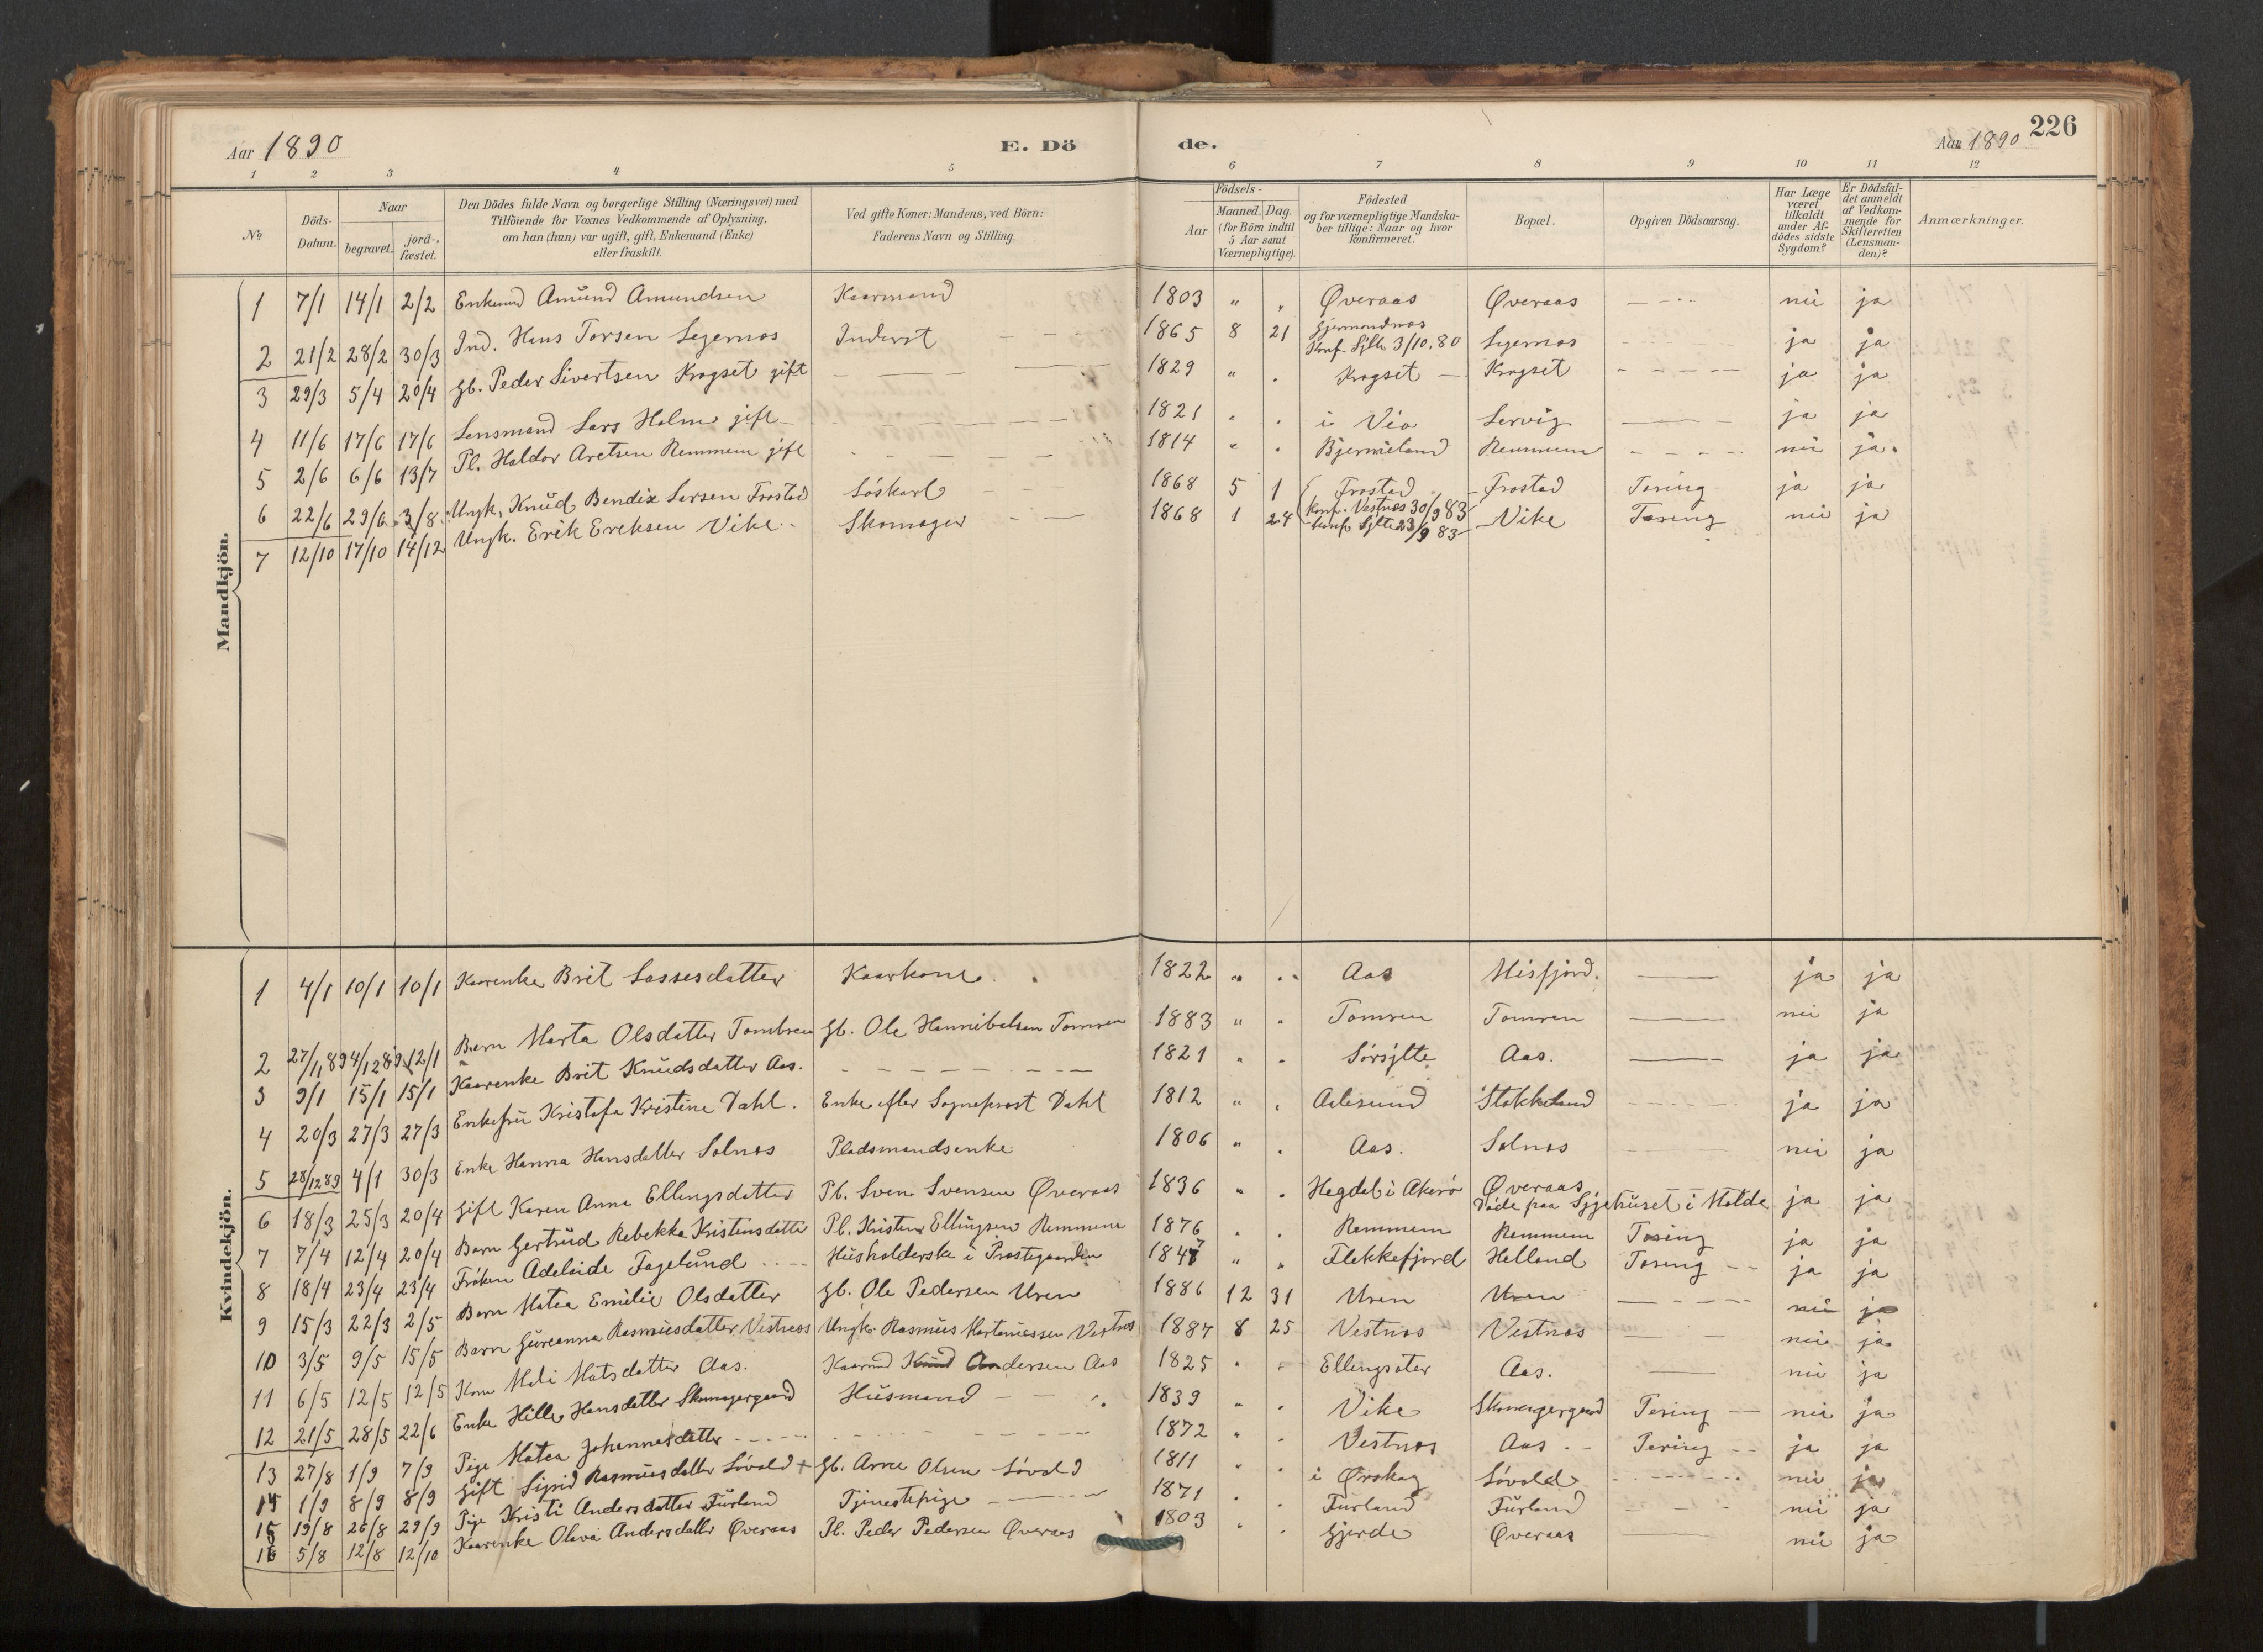 Aar 1890 E. Dö de. Aar 1890 226
1 2 3 4 5 6 7 8 9 10 11 12
№ Döds-Datum. Naar begravet. jord-fæstet. Den Dödes fulde Navn og borgerlige Stilling (Næringsvei) med Tilföiende for Voxnes Vedkommende af Oplysning, om han (hun) var ugift, gift, Enkemand (Enke) eller fraskilt. Ved gifte Koner: Mandens, ved Börn: Faderens Navn og Stilling. Födsels- Aar Maaned. Dag. (for Börn indtil 5 Aar samt Værnepligtige). Födested og for værnepligtige Mandskaber tillige: Naar og hvor konfirmeret. Bopæl. Opgiven Dödsaarsag. Har Læge været tilkaldt under Afdödes sidste Sygdom? Er Dödsfaldet anmeldt af Vedkommende for Skifteretten (Lensmanden)? Anmærkninger.
Mandkjön.
1 7/1 14/1 2/2 Enkemd Amund Amundsen Kaarmand 1803 " . Øveraas Øveraas nei ja
2 21/2 28/2 30/3 Ind. Hans Torsen Legernæs Inderst 1865 8 21 Gjermundnæs Konf. Sylte 3/10.80 Legernæs ja ja
3 29/3 5/4 20/4 Gb. Peder Sivertsen Kragset gift 1829 " . Kragset Kragset ja ja
4 11/6 17/6 17/6 Lensmand Lars Holm gift 1821 " . i Viø Lervig ja ja
5 2/6 6/6 13/7 Pl. Haldor Aretsen Remmem gift 1814 " . Bjermeland Remmem nei ja
6 22/6 29/6 3/8 Ungk. Knud Bendix Larsen Frostad Löskarl 1868 5 1 Frostad konf. Vestnæs 30/9 83 Frostad Tæring ja ja
7 12/10 17/10 14/12 Ungk. Erik Ereksen Vike Skomager 1868 1 24 konf. Sylte 23/9 83 Vike Tæring nei ja
Kvindekjön.
1 4/1 10/1 10/1 Kaarenke Brit Lassesdatter Kaarkone 1822 " . Aas Misfjord. ja ja
2 27/11 89 4/12 89 12/1 Barn Marta Olsdatter Tombren Gb. Ole Hannibalsen Tomren 1883 " . Tomren Tomren nei ja
3 9/1 15/1 15/1 Kaarenke Brit Knudsdatter Aas. 1821 " . Sörsylte Aas. ja ja
4 20/3 27/3 27/3 Enkefru Kristofa Kristine Dahl. Enke efter Sogneprost Dahl 1812 " . Aalesund Stokkeland ja ja
5 28/12 89 4/1 30/3 Enke Hanna Hansdatter Solnæs Pladsmandsenke 1806 " . Aas. Solnæs nei ja
6 18/3 25/3 20/4 Gift Karen Anna Ellingsdatter Pl. Sven Svensen Øveraas 1836 " . Hegdal i Akerö Øveraas Döde paa Sygehuset i Molde ja ja
7 7/4 12/4 20/4 Barn Gertrud Rebekka Kristensdatter Pl. Kristen Ellingsen Remmem 1876 . . Remmem Remmem Tæring ja ja
8 18/4 23/4 23/4 Fröken Adelaide Fagelund Husholderske i Prostegaarden 1847 " . Flekkefjord Helland Tæring ja ja
9 15/3 22/3 2/5 Barn Matea Emilie Olsdatter Gb. Ole Pedersen Uren 1886 12 31 Uren Uren nei ja
10 3/5 9/5 15/5 Barn Gureanna Rasmusdatter Vestnæs Ungk. Rasmus Martinussen Vestnæs 1887 8 25 Vestnæs Vestnæs nei ja
11 6/5 12/5 12/5 Kone Mali Matsdatter Aas. Kaarmd Knud Andersen Aas 1825 " . Ellingsæter Aas. nei ja
12 21/5 28/5 22/6 Enke Hille Hansdatter Skomagergaard Husmand 1839 " . Vike Skomagergaard Tæring nei ja
13 27/8 1/9 7/9 Pige Matea Johannesdatter 1872 " . Vestnæs Aas Tæring ja ja
14 1/9 8/9 8/9 Gift Sigrid Rasmusdatter Lövold + Gb. Arne Olsen Lövold 1811 . . i Ørskog Lövold nei ja
15 19/8 26/8 29/9 Pige Kristi Andersdatter Furland Tjenestepige 1871 . . Furland Furland nei ja
16 5/8 12/8 12/10 Kaarenke Olava Andersdatter Øveraas Pl. Peder Pedersen Øveraas 1803 . . Gjerde Øveraas nei ja